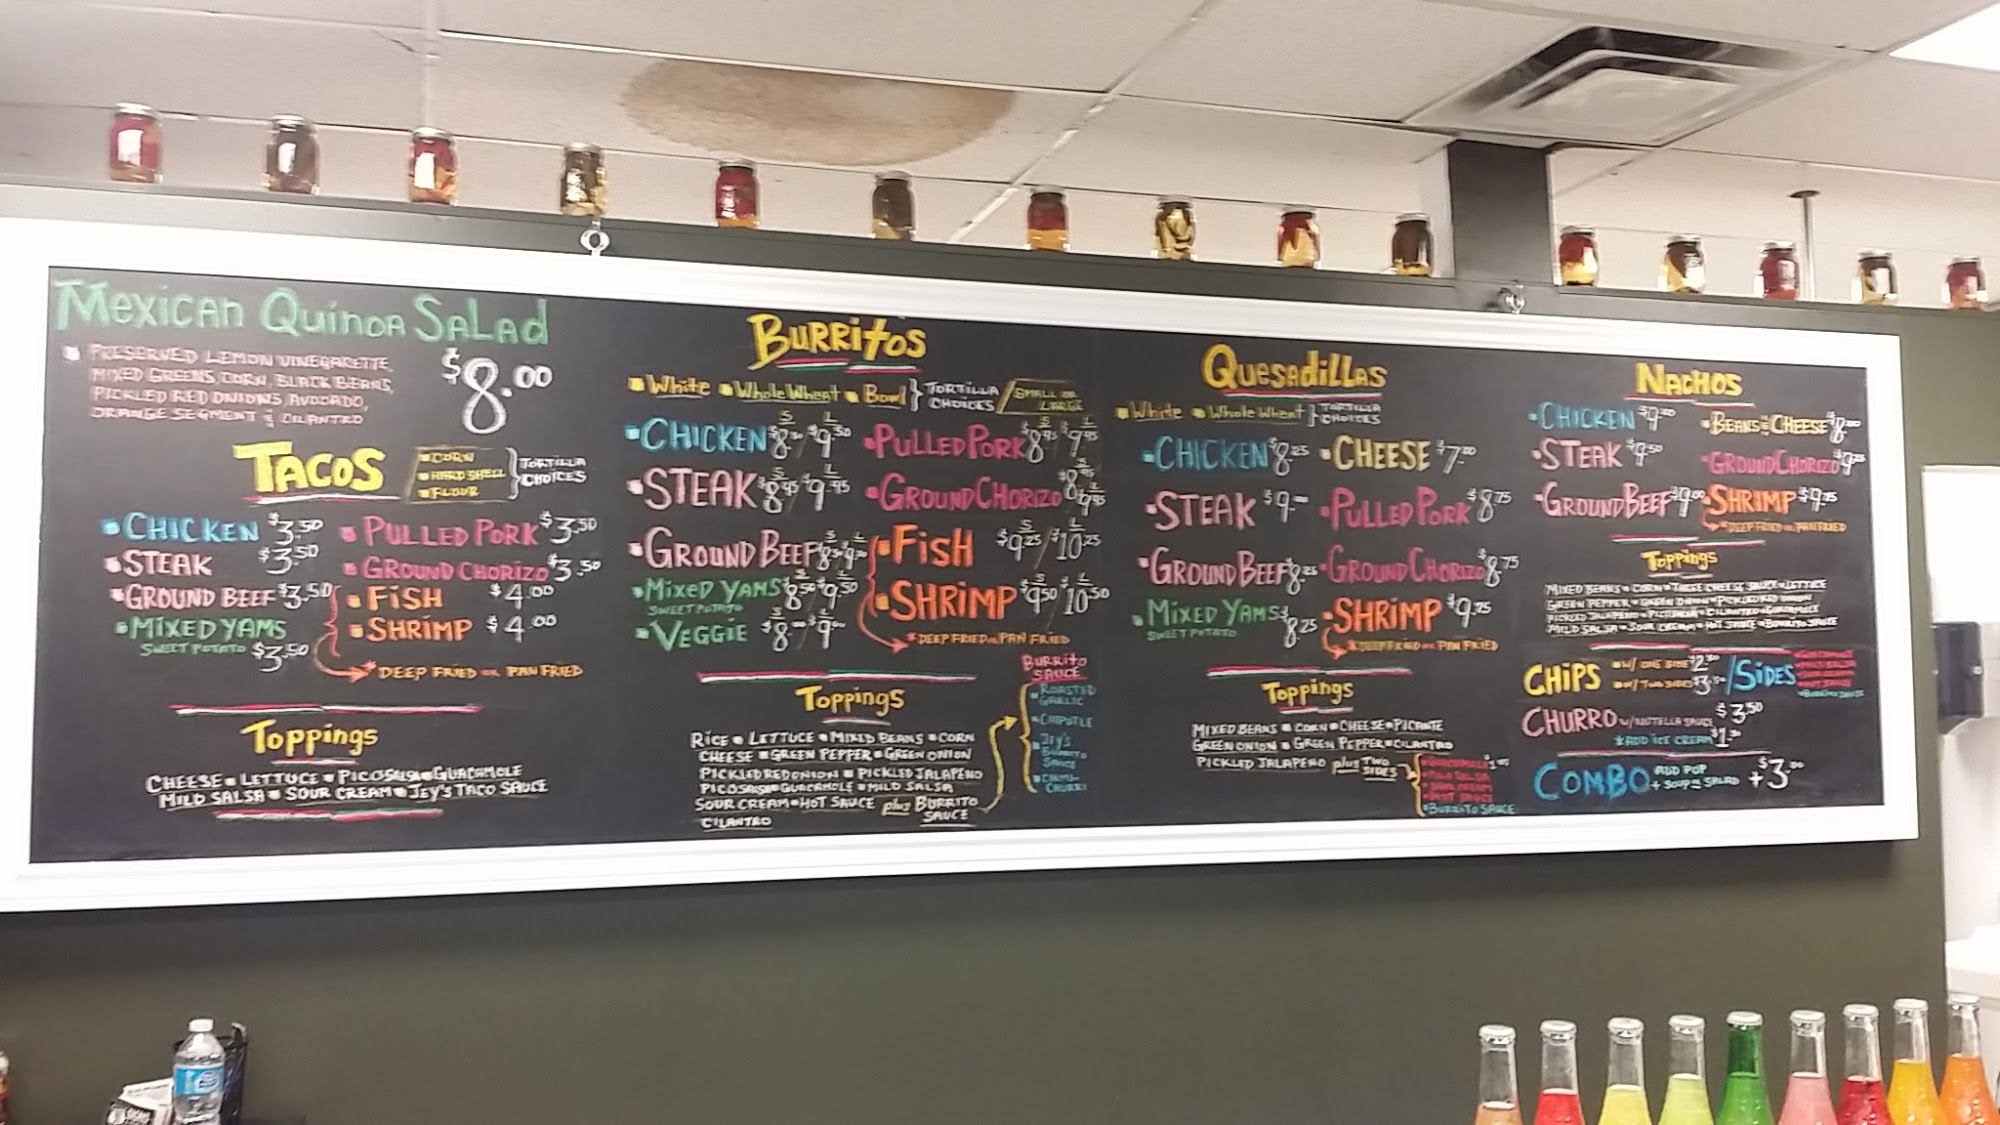 Mexican Quinoa Salad
PRESERVED LEMON VINEGARETTE,
MIXED GREENS, CORN, BLACK BEANS,
PICKLED RED ONIONS, AVOCADO,
ORANGE SEGMENT & CILANTRO
$8.00
TACOS
CORN
HARD SHELL
FLOUR
TORTILLA CHOICES
CHICKEN $3.50
STEAK $3.50
GROUND BEEF $3.50
MIXED YAMS
SWEET POTATO $3.50
PULLED PORK $3.50
GROUND CHORIZO $3.50
FISH $4.00
SHRIMP $4.00
* DEEP FRIED OR PAN FRIED
Toppings
CHEESE LETTUCE PICO SALSA GUACAMOLE
MILD SALSA SOUR CREAM JEY'S TACO SAUCE
BURRITOS
White Whole Wheat Bowl TORTILLA CHOICES / SMALL OR LARGE
CHICKEN S $8.50 / L $9.50
STEAK S $8.95 / L $9.95
GROUND BEEF S L
MIXED YAMS S $8.50 L $9.50
SWEET POTATO
VEGGIE S $8.00 / L $9.00
PULLED PORK S $8.95 / L $9.95
GROUND CHORIZO $8.95 $9.95
FISH S $9.25 / L $10.25
SHRIMP S $9.50 / L $10.50
* DEEP FRIED OR PAN FRIED
Toppings
RICE LETTUCE MIXED BEANS CORN
CHEESE GREEN PEPPER GREEN ONION
PICKLED RED ONION PICKLED JALAPENO
PICO SALSA GUACAMOLE MILD SALSA
SOUR CREAM HOT SAUCE plus BURRITO SAUCE
CILANTRO
BURRITO SAUCE
ROASTED GARLIC
CHIPOTLE
JEY'S BURRITO SAUCE
CHIMI-CHURRI
QUESADILLAS
White Whole Wheat TORTILLA CHOICES
CHICKEN $8.25
STEAK $9.00
GROUND BEEF $8.25
MIXED YAMS $8.25
SWEET POTATO
CHEESE $7.00
PULLED PORK $8.75
GROUND CHORIZO $8.75
SHRIMP $9.75
* DEEP FRIED OR PAN FRIED
Toppings
MIXED BEANS CORN CHEESE PICANTE
GREEN ONION GREEN PEPPER CILANTRO
PICKLED JALAPENO plus TWO SIDES
GUACAMOLE
MILD SALSA
SOUR CREAM
HOT SAUCE
BURRITO SAUCE
NACHOS
CHICKEN $9.00
STEAK $9.50
GROUND BEEF $9.00
BEANS & CHEESE $8.00
GROUND CHORIZO $9.25
SHRIMP $9.75
* DEEP FRIED OR PAN FRIED
Toppings
MIXED BEANS CORN THREE CHEESE SAUCE LETTUCE
GREEN PEPPER GREEN ONION PICKLED RED ONION
PICKLED JALAPENO PICO SALSA CILANTRO GUACAMOLE
MILD SALSA SOUR CREAM HOT SAUCE BURRITO SAUCE
CHIPS W/ ONE SIDE $2.50
W/ TWO SIDES $3.50
/ SIDES
GUACAMOLE
MILD SALSA
SOUR CREAM
HOT SAUCE
BURRITO SAUCE
CHURRO W/ NUTELLA SAUCE $3.50
* ADD ICE CREAM
COMBO ADD POP
+ SOUP OR SALAD
+ $3.00